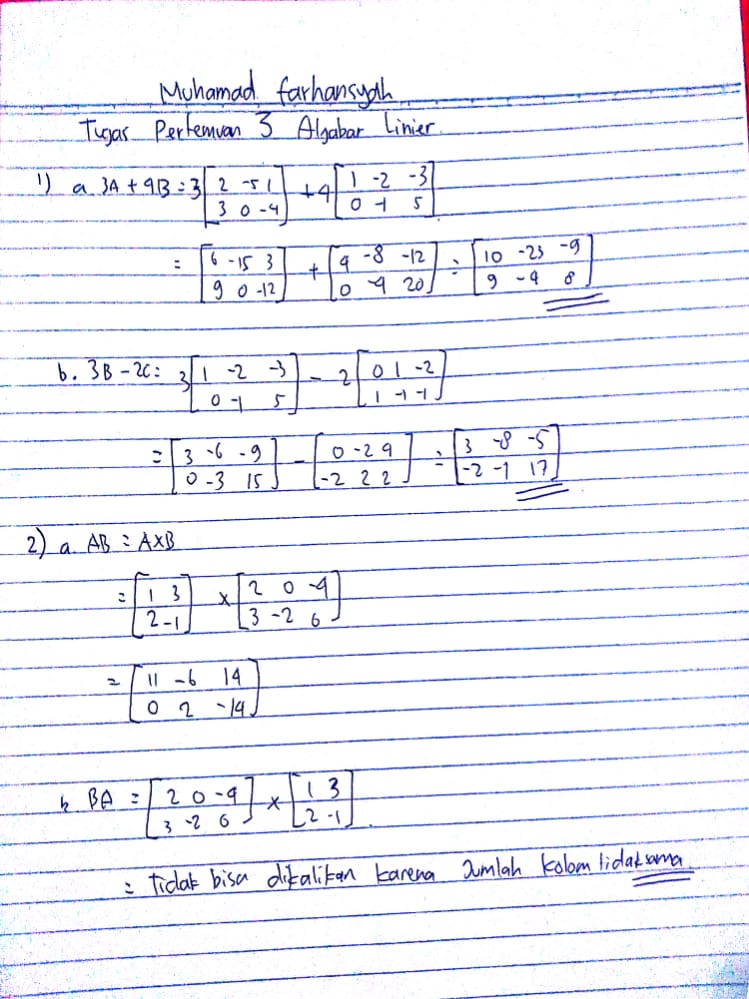 Muhamad farhansyah
Tugas Pertemuan 3 Algabar Linier
1) a. 3A + 4B = 3 [2 -5 1 + 4 [1 -2 -3
3 0 -4] 0 -1 5]
= [6 -15 3 + [4 -8 -12 = [10 -23 -9
9 0 -12] 0 -4 20] 9 -4 8]
b. 3B - 2C = 3 [1 -2 -3 - 2 [0 1 -2
0 -1 5] 1 -1 -1]
= [3 -6 -9 - [0 -2 4 = [3 -8 -5
0 -3 15] -2 2 2] -2 -1 17]
2) a. AB = A×B
= [1 3 × [2 0 -4
2 -1] 3 -2 6]
= [11 -6 14
0 2 -14]
b BA = [2 0 -4 × [1 3
3 -2 6] 2 -1]
= Tidak bisa dikalikan karena Jumlah kolom tidak sama